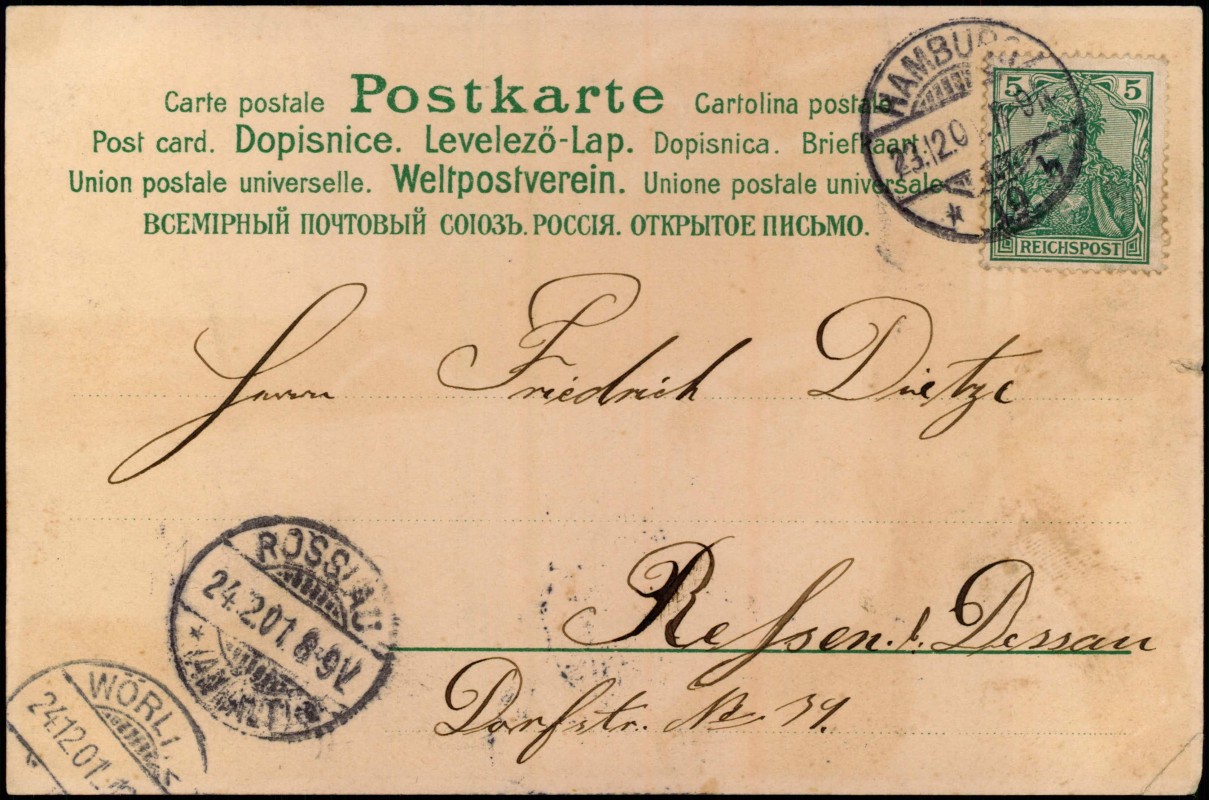 Carte postale Postkarte Cartolina postale
Post card. Dopisnice. Levelező-Lap. Dopisnica. Briefkaart.
Union postale universelle. Weltpostverein. Unione postale universale
ВСЕМІРНЫЙ ПОЧТОВЫЙ СОЮЗЪ. РОССІЯ. ОТКРЫТОЕ ПИСЬМО.
HAMBURG
23.12.0
*
5 5
REICHSPOST
Herrn Friedrich Dietze
Ressen. b. Dessau
Dorfstr. No 39.
ROSSLAU
24.12.01. 8-9V.
* (ANHALT)
WÖRLI
24.12.01.